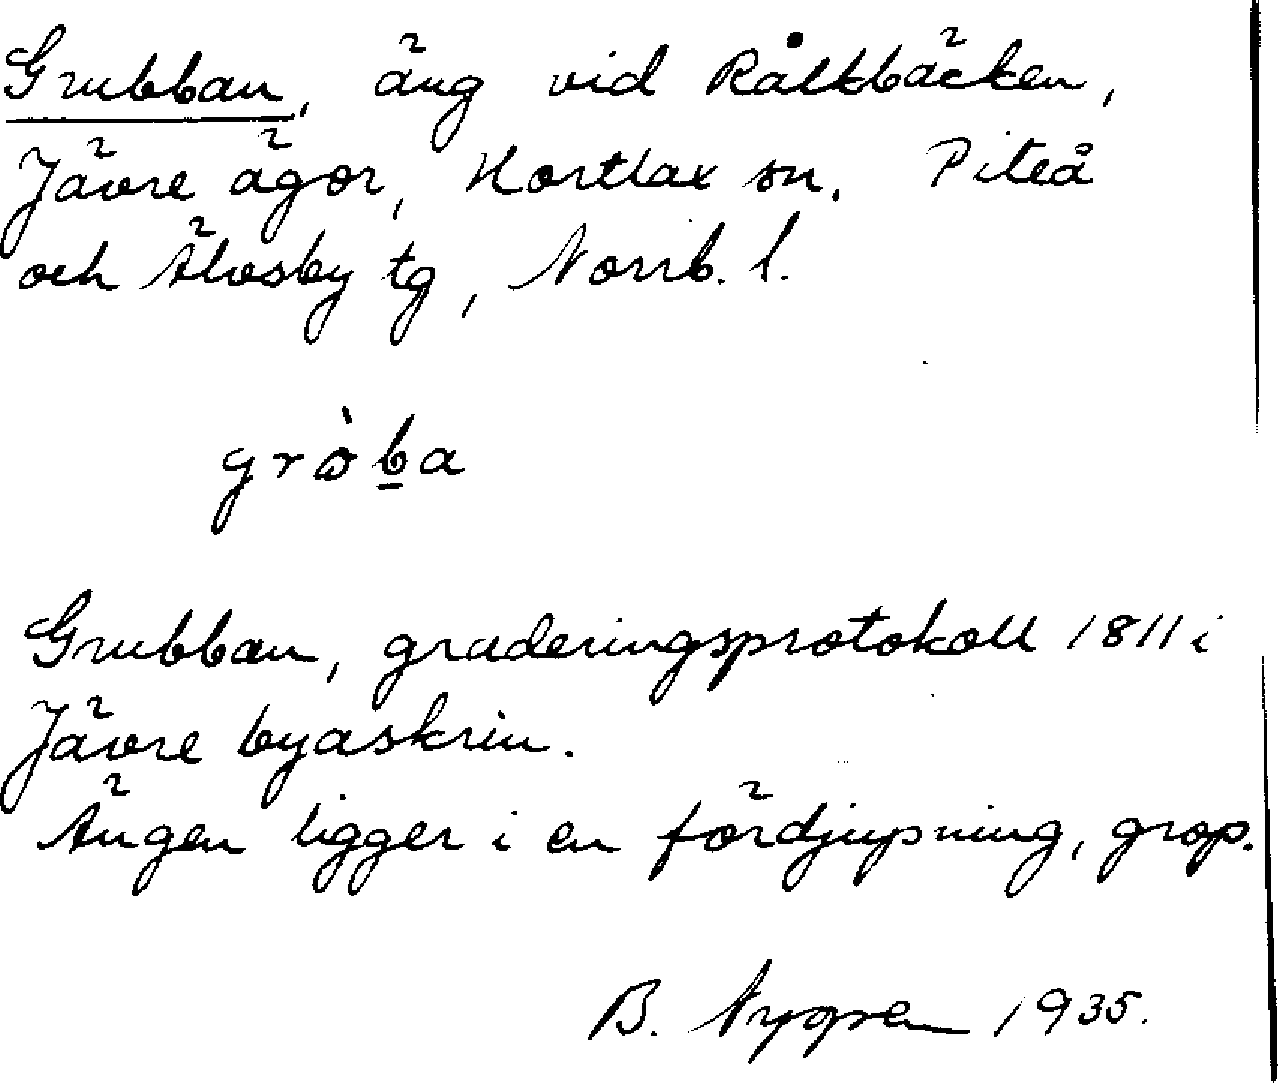 Grubban, äng vid Råltbäcken,
Jävre ägor, Hortlax sn. Piteå
och Älvsby tg, Norrb. l.
gròb̲a
Grubban, graderingsprotokoll 1811 i
Jävre byaskrin.
Ängen ligger i en fördjupning, grop.
B. Nygren 1935.